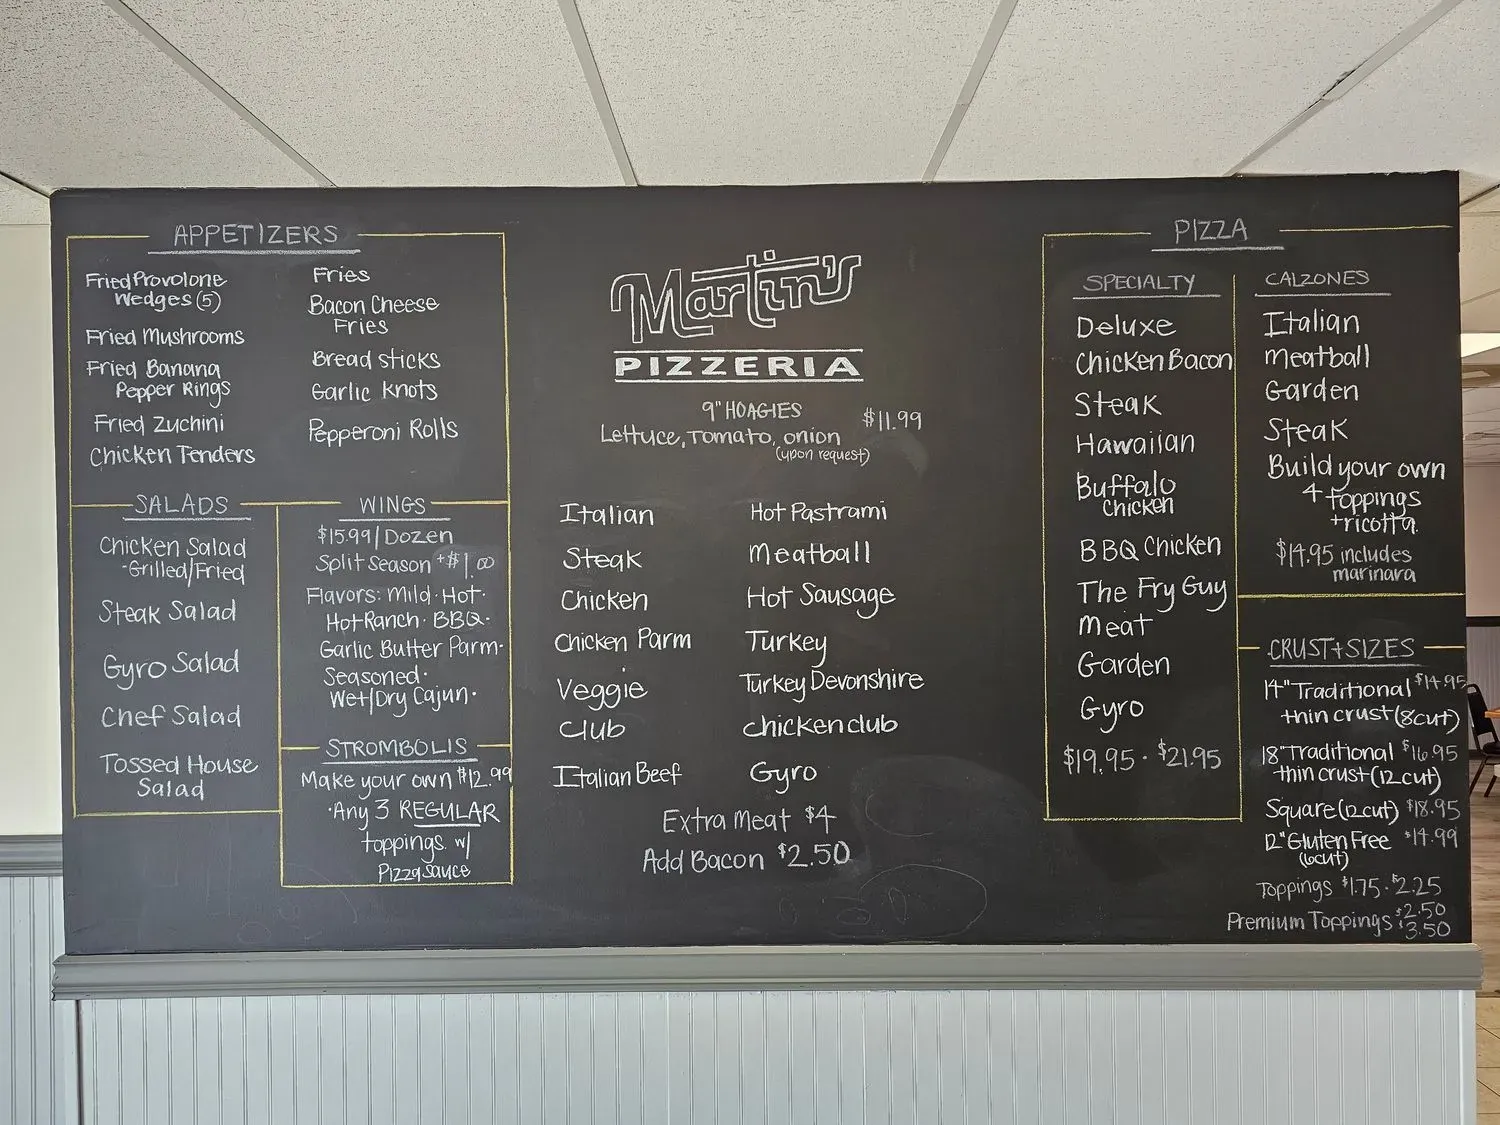 APPETIZERS
Fried Provolone
Wedges (5)
Fried Mushrooms
Fried Banana
Pepper Rings
Fried Zuchini
Chicken Tenders
Fries
Bacon Cheese
Fries
Bread sticks
Garlic Knots
Pepperoni Rolls
SALADS
Chicken Salad
-Grilled/Fried
Steak Salad
Gyro Salad
Chef Salad
Tossed House
Salad
WINGS
$15.99/Dozen
Split Season +$1.00
Flavors: Mild · Hot ·
Hot Ranch · BBQ ·
Garlic Butter Parm ·
Seasoned ·
Wet/Dry Cajun ·
STROMBOLIS
Make your own $12.99
·Any 3 REGULAR
toppings w/
Pizza sauce
Martin's
PIZZERIA
9" HOAGIES $11.99
Lettuce, Tomato, onion
(upon request)
Italian
Steak
Chicken
Chicken Parm
Veggie
Club
Italian Beef
Hot Pastrami
Meatball
Hot Sausage
Turkey
Turkey Devonshire
Chicken club
Gyro
Extra Meat $4
Add Bacon $2.50
PIZZA
SPECIALTY
Deluxe
Chicken Bacon
Steak
Hawaiian
Buffalo
Chicken
BBQ Chicken
The Fry Guy
Meat
Garden
Gyro
$19.95 · $21.95
CALZONES
Italian
Meatball
Garden
Steak
Build your own
4 toppings
+ricotta
$14.95 includes
marinara
CRUST+SIZES
14" Traditional $14.95
thin crust (8cut)
18" Traditional $16.95
thin crust (12 cut)
Square (12cut) $18.95
12" Gluten Free $14.99
(6cut)
Toppings $1.75 · $2.25
Premium Toppings $2.50
$3.50